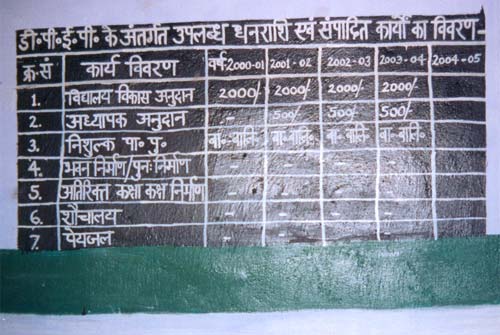 डी॰पी॰ई॰पी॰ के अंतर्गत उपलब्ध धनराशि एवं संपादित कार्यो का विवरण-
क्र॰सं कार्य विवरण वर्ष-2000-01 2001-02 2002-03 2003-04 2004-05
1. विद्यालय विकास अनुदान 2000/- 2000/- 2000/- 2000/-
2. अध्यापक अनुदान - 500/- 500/- 500/-
3. निशुल्क पा॰ पु॰ बा॰-बालि॰ बा॰-बालि॰ बा॰-बालि॰ बा॰-बालि॰
4. भवन निर्माण/पुनः निर्माण - - - -
5. अतिरिक्त कक्षा कक्ष निर्माण - - - -
6. शौचालय - - - -
7. पेयजल - - - -